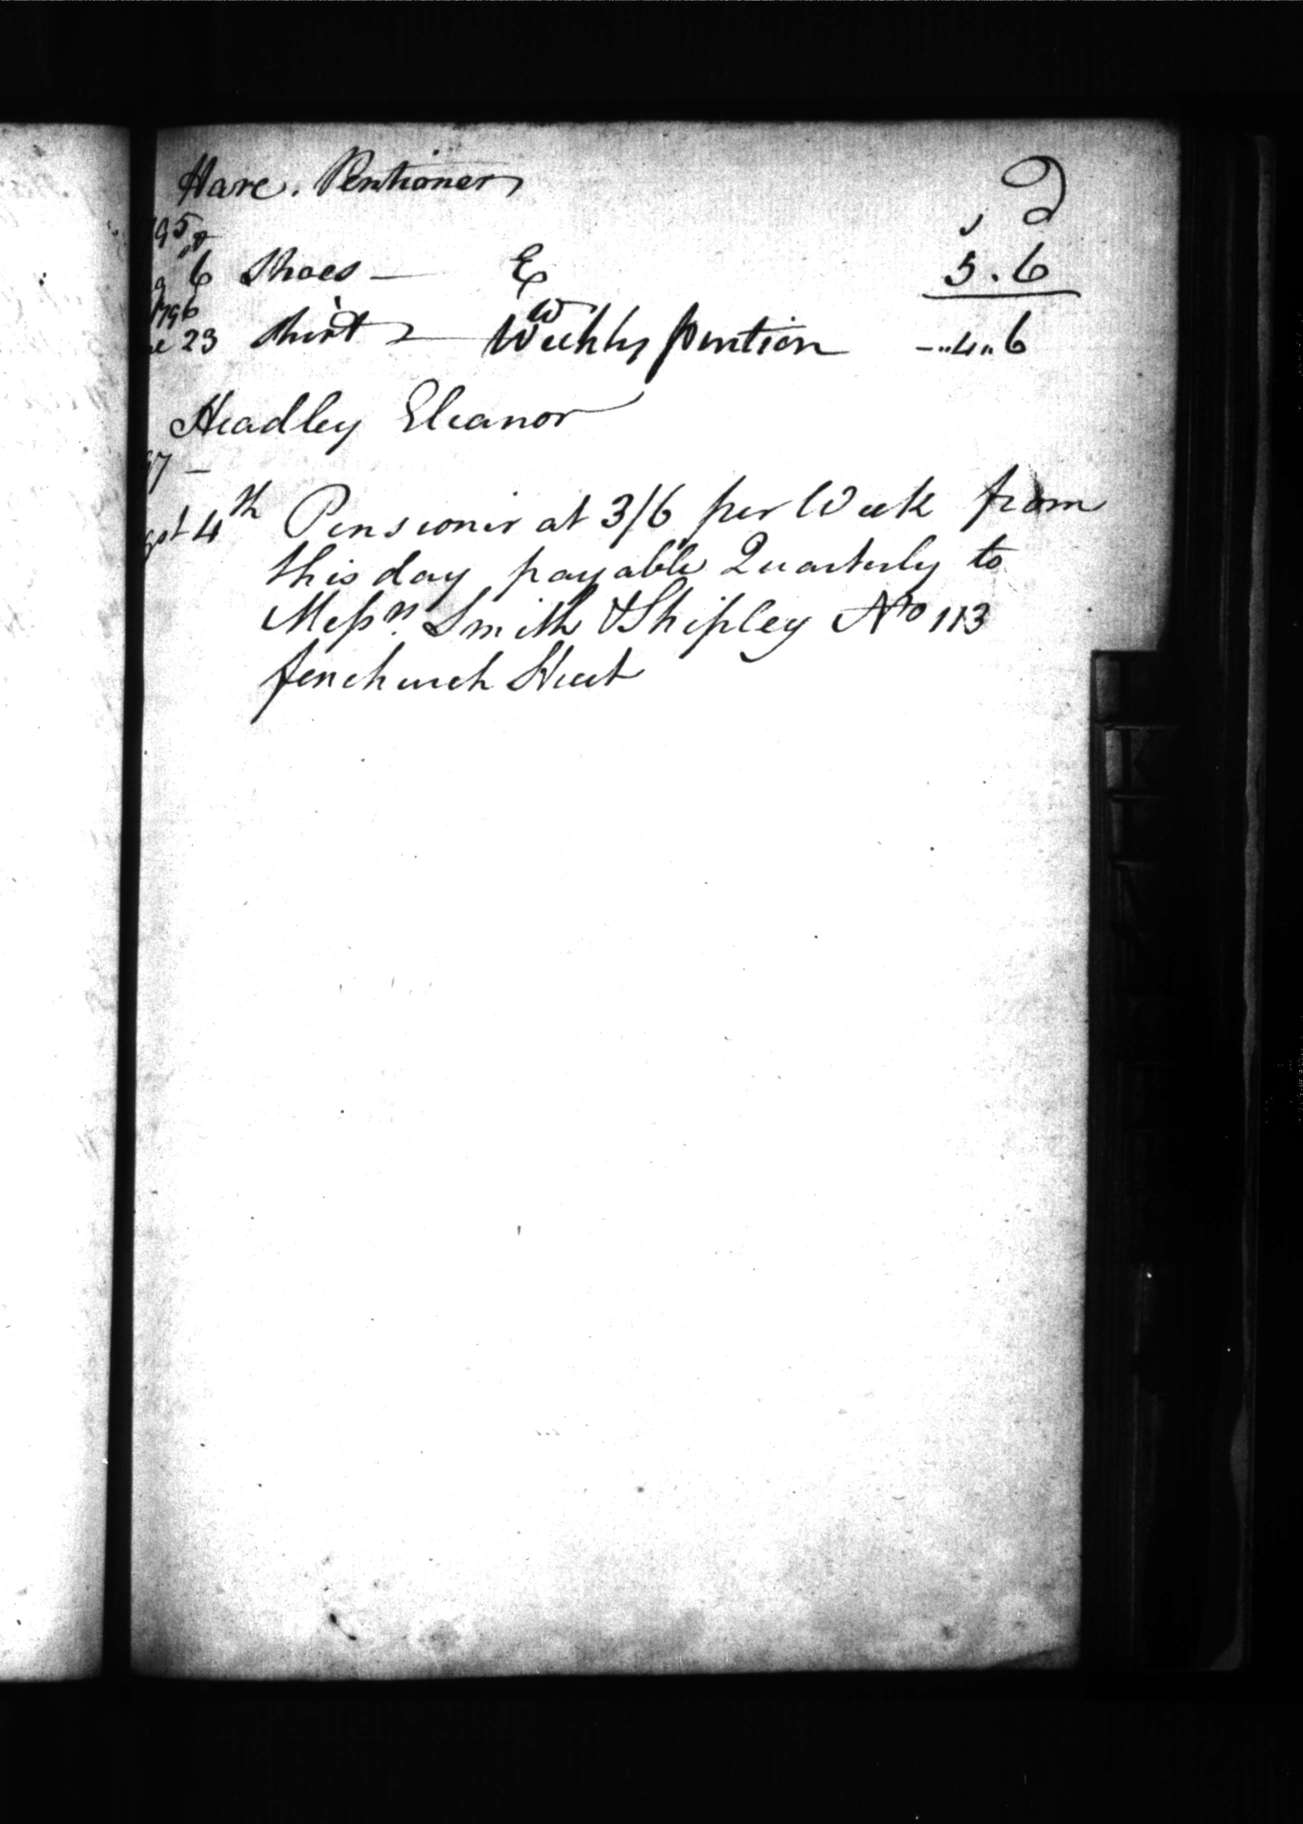 Hare. Pentioner
s d
795
6 Shoes — E 5.6
1796
23 Shirt — Weekly pention —"4"6
Headley Eleanor
97 —
gst 4th Pensioner at 3/6 per Week from
this day payable Quarterly to
Messrs. Smith & Shipley No 113
fenchurch Street